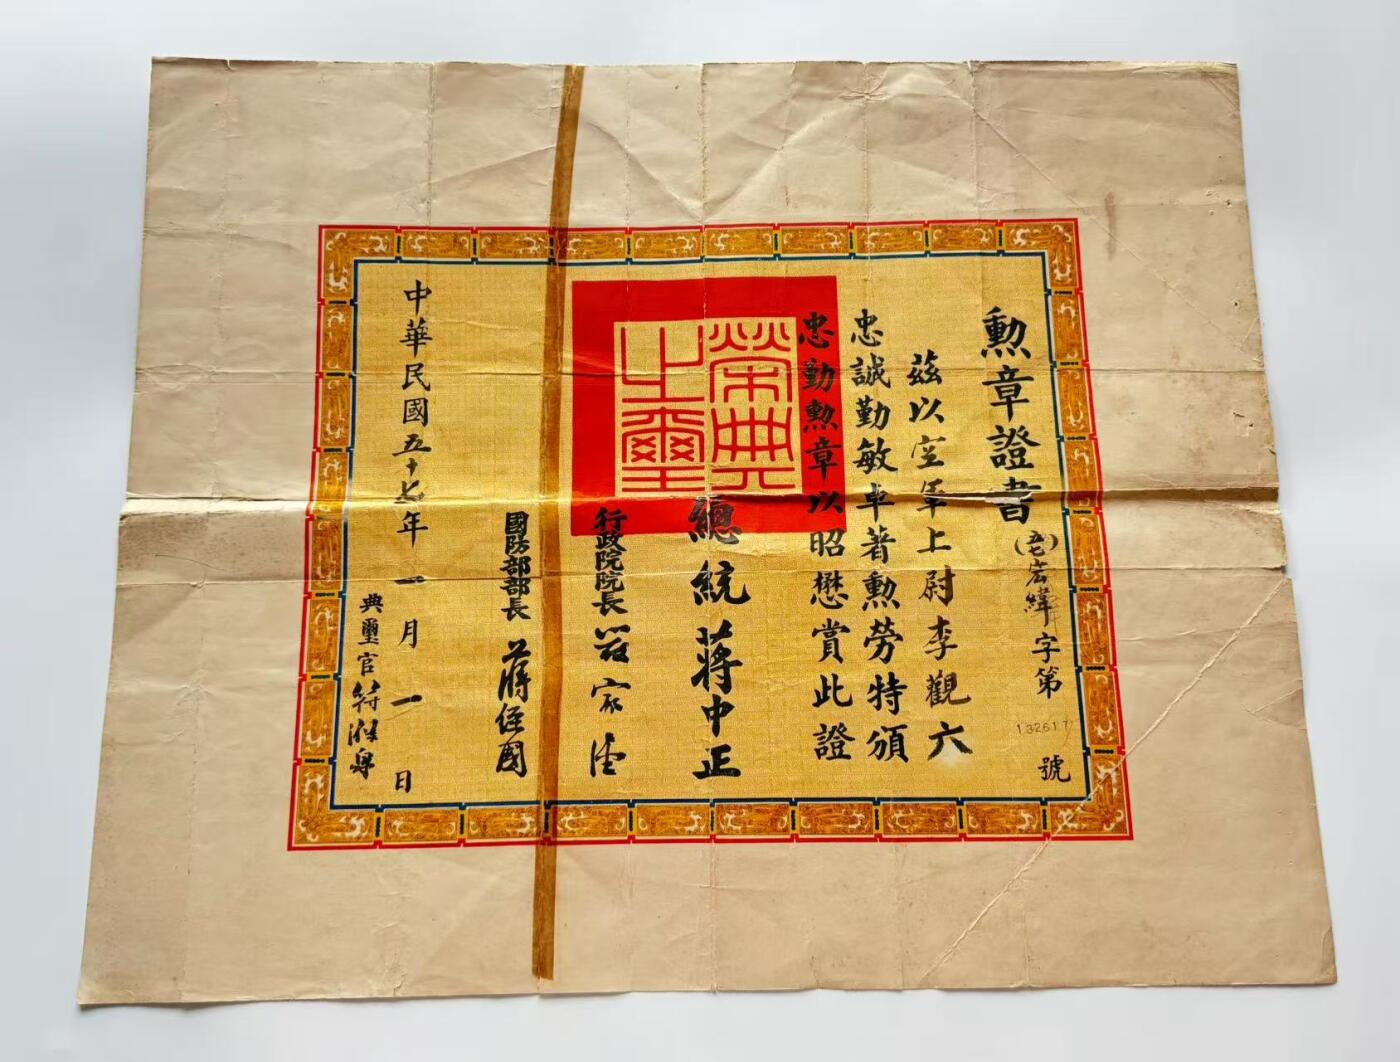 勳章證書
(五七)宏緯字第132617號
茲以空軍上尉李觀六
忠誠勤敏卓著勳勞特頒
忠勤勳章以昭懋賞此證
榮典之璽
總統蔣中正
行政院院長嚴家淦
國防部部長蔣經國
中華民國五十七年一月一日
典璽官符滌泉